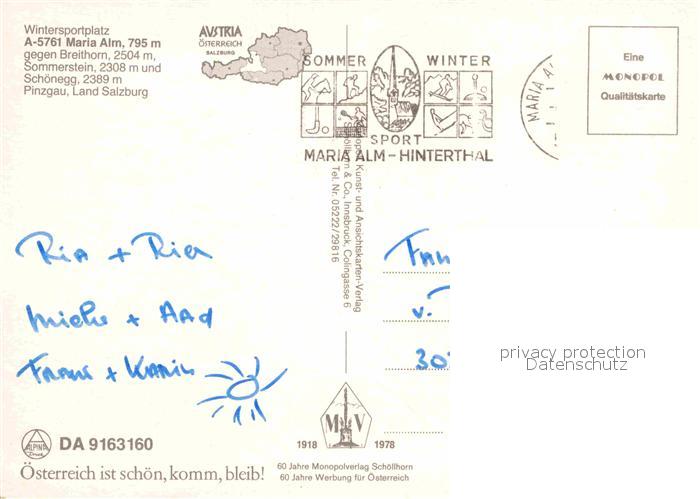 Wintersportplatz
A-5761 Maria Alm, 795 m
gegen Breithorn, 2504 m,
Sommerstein, 2308 m und
Schönegg, 2389 m
Pinzgau, Land Salzburg
AUSTRIA
ÖSTERREICH
SALZBURG
SOMMER WINTER
SPORT
MARIA ALM - HINTERTHAL
MARIA A
Eine
MONOPOL
Qualitätskarte
Kunst- und Ansichtskarten-Verlag
Schöllhorn & Co., Innsbruck, Colingasse 6
Tel. Nr. 05222/29816
Ria + Rien
Mieke + Aad
Frans + Karin
Fam
v.
30
privacy protection
Datenschutz
ALPINA
Druck
DA 9163160
Österreich ist schön, komm, bleib!
M V
1918 1978
60 Jahre Monopolverlag Schöllhorn
60 Jahre Werbung für Österreich